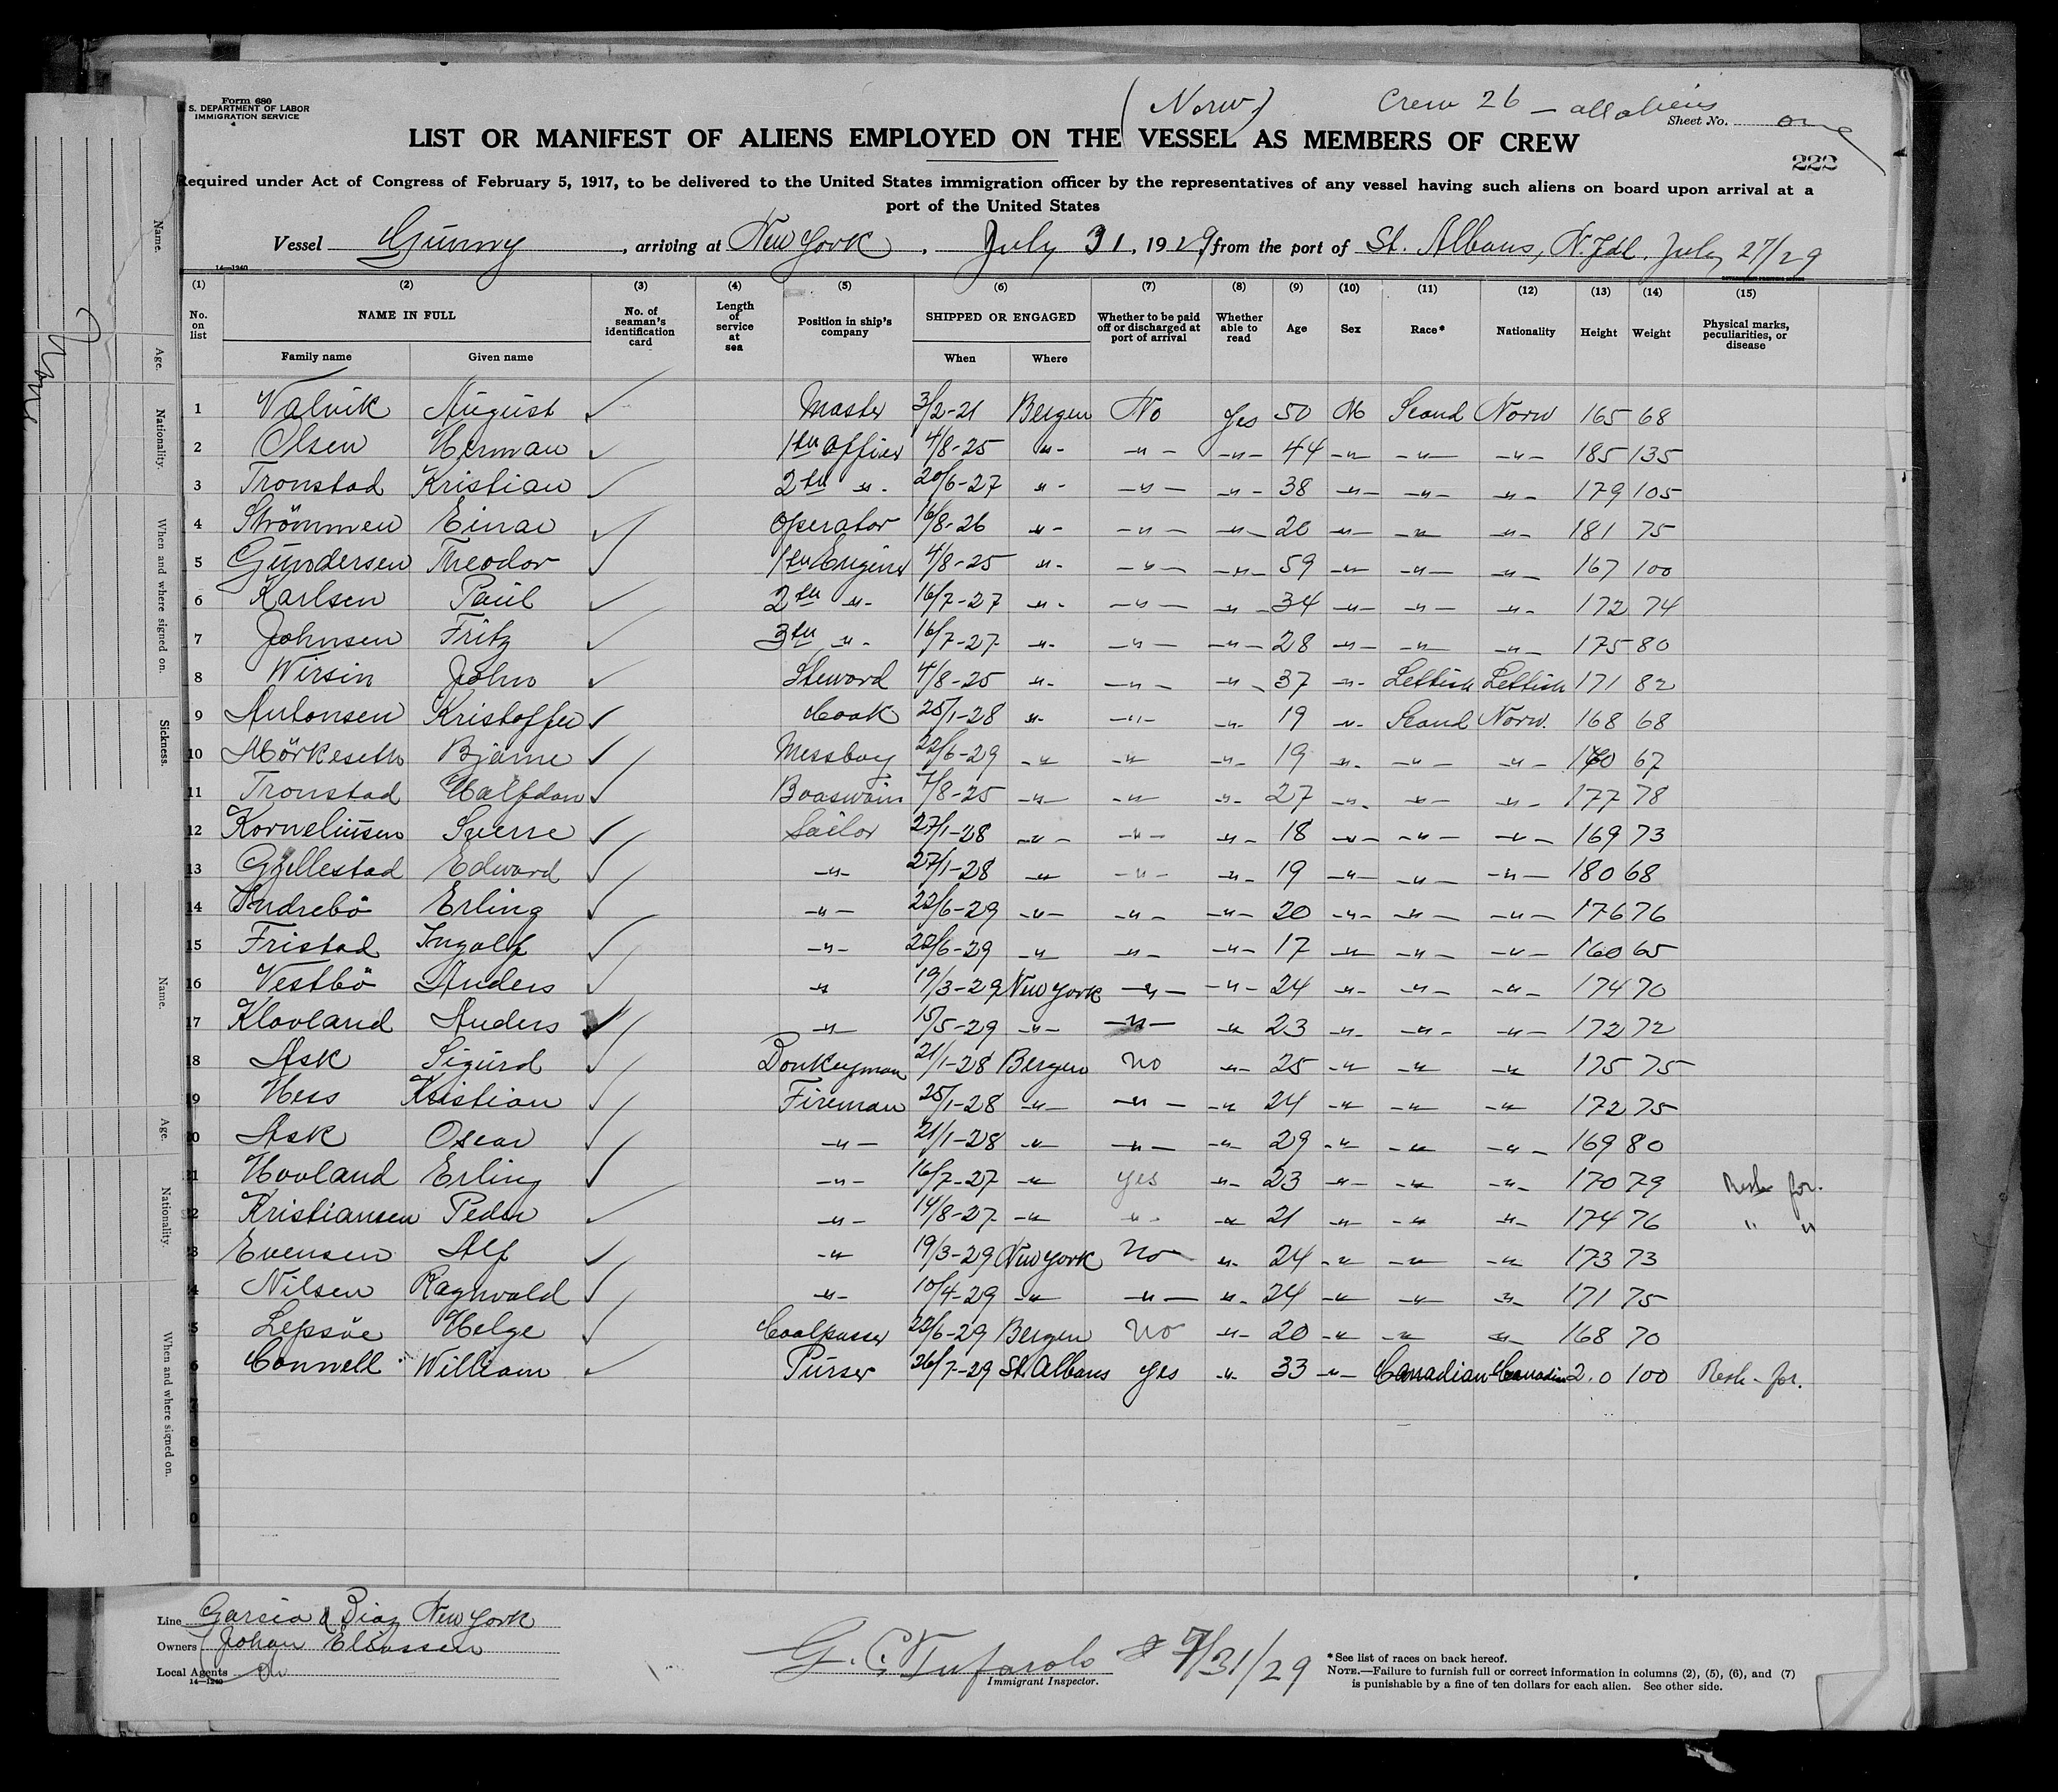 Form 680
S. DEPARTMENT OF LABOR
IMMIGRATION SERVICE
(Norw) Crew 26 — all aliens
Sheet No. one
LIST OR MANIFEST OF ALIENS EMPLOYED ON THE VESSEL AS MEMBERS OF CREW
222
Required under Act of Congress of February 5, 1917, to be delivered to the United States immigration officer by the representatives of any vessel having such aliens on board upon arrival at a
port of the United States
Vessel Gunny, arriving at New York, July 31, 1929, from the port of St. Albans, N. Fdl. July 27/29
14—1240
(1) (2) (3) (4) (5) (6) (7) (8) (9) (10) (11) (12) (13) (14) (15)
No. on list NAME IN FULL No. of seaman's identification card Length of service at sea Position in ship's company SHIPPED OR ENGAGED Whether to be paid off or discharged at port of arrival Whether able to read Age Sex Race* Nationality Height Weight Physical marks, peculiarities, or disease
Family name Given name When Where
1 Valvik August ✓ Master 3/2-21 Bergen No Yes 50 M Scand Norw 165 68
2 Olsen Herman ✓ 1th Officer 4/8-25 -"- -"- -"- 44 -"- -"- -"- 185 135
3 Tronstad Kristian ✓ 2th -"- 20/6-27 -"- -"- -"- 38 -"- -"- -"- 179 105
4 Strömmen Einar ✓ Operator 16/8-26 -"- -"- -"- 20 -"- -"- -"- 181 75
5 Gundersen Theodor ✓ 1th Engineer 4/8-25 -"- -"- -"- 59 -"- -"- -"- 167 100
6 Karlsen Paul ✓ 2th -"- 16/7-27 -"- -"- -"- 34 -"- -"- -"- 172 74
7 Johnsen Fritz ✓ 3th -"- 16/7-27 -"- -"- -"- 28 -"- -"- -"- 175 80
8 Wirsin John ✓ Steward 4/8-25 -"- -"- -"- 37 -"- Lettish Lettish 171 82
9 Antonsen Kristoffer ✓ Cook 25/1-28 -"- -"- -"- 19 -"- Scand Norw. 168 68
10 Mörkeseth Bjarne ✓ Messboy 22/6-29 -"- -"- -"- 19 -"- -"- -"- 170 67
11 Tronstad Halfdan ✓ Boaswain 4/8-25 -"- -"- -"- 27 -"- -"- -"- 177 78
12 Korneliussen Sverre ✓ Sailor 27/1-28 -"- -"- -"- 18 -"- -"- -"- 169 73
13 Gjellestad Edward ✓ -"- 27/1-28 -"- -"- -"- 19 -"- -"- -"- 180 68
14 Indrebö Erling ✓ -"- 22/6-29 -"- -"- -"- 20 -"- -"- -"- 176 76
15 Fristad Ingolf ✓ -"- 22/6-29 -"- -"- -"- 17 -"- -"- -"- 160 65
16 Vestbö Anders ✓ -"- 19/3-29 New York -"- -"- 24 -"- -"- -"- 174 70
17 Klovland Anders ✓ -"- 15/5-29 -"- -"- -"- 23 -"- -"- -"- 172 72
18 Ask Sigurd ✓ Donkeyman 21/1-28 Bergen no -"- 25 -"- -"- -"- 175 75
9 Hess Kristian ✓ Fireman 25/1-28 -"- -"- -"- 24 -"- -"- -"- 172 75
0 Ask Oscar ✓ -"- 21/1-28 -"- -"- -"- 29 -"- -"- -"- 169 80
1 Hovland Erling ✓ -"- 16/7-27 -"- yes -"- 23 -"- -"- -"- 170 79 Resh. for.
2 Kristiansen Peder ✓ -"- 14/8-27 -"- -"- -"- 21 -"- -"- -"- 174 76 " "
3 Evensen Alf ✓ -"- 19/3-29 New York No -"- 24 -"- -"- -"- 173 73
4 Nilsen Ragnvald ✓ -"- 10/4-29 -"- -"- -"- 24 -"- -"- -"- 171 75
5 Lepsöe Helge ✓ Coalpasser 22/6-29 Bergen No -"- 20 -"- -"- -"- 168 70
6 Connell William ✓ Purser 26/7-29 St. Albans yes -"- 33 -"- Canadian Canadian 2.0 100 Resh. for.
7
8
9
0
Line Garcia & Diaz New York
Owners Johan Eliassen
Local Agents
14—1240
G. C. Tufarolo 7/31/29
Immigrant Inspector.
* See list of races on back hereof.
NOTE.—Failure to furnish full or correct information in columns (2), (5), (6), and (7)
is punishable by a fine of ten dollars for each alien. See other side.
Name.
Age.
Nationality.
When and where signed on.
Sickness.
None
Name.
Age.
Nationality.
When and where signed on.